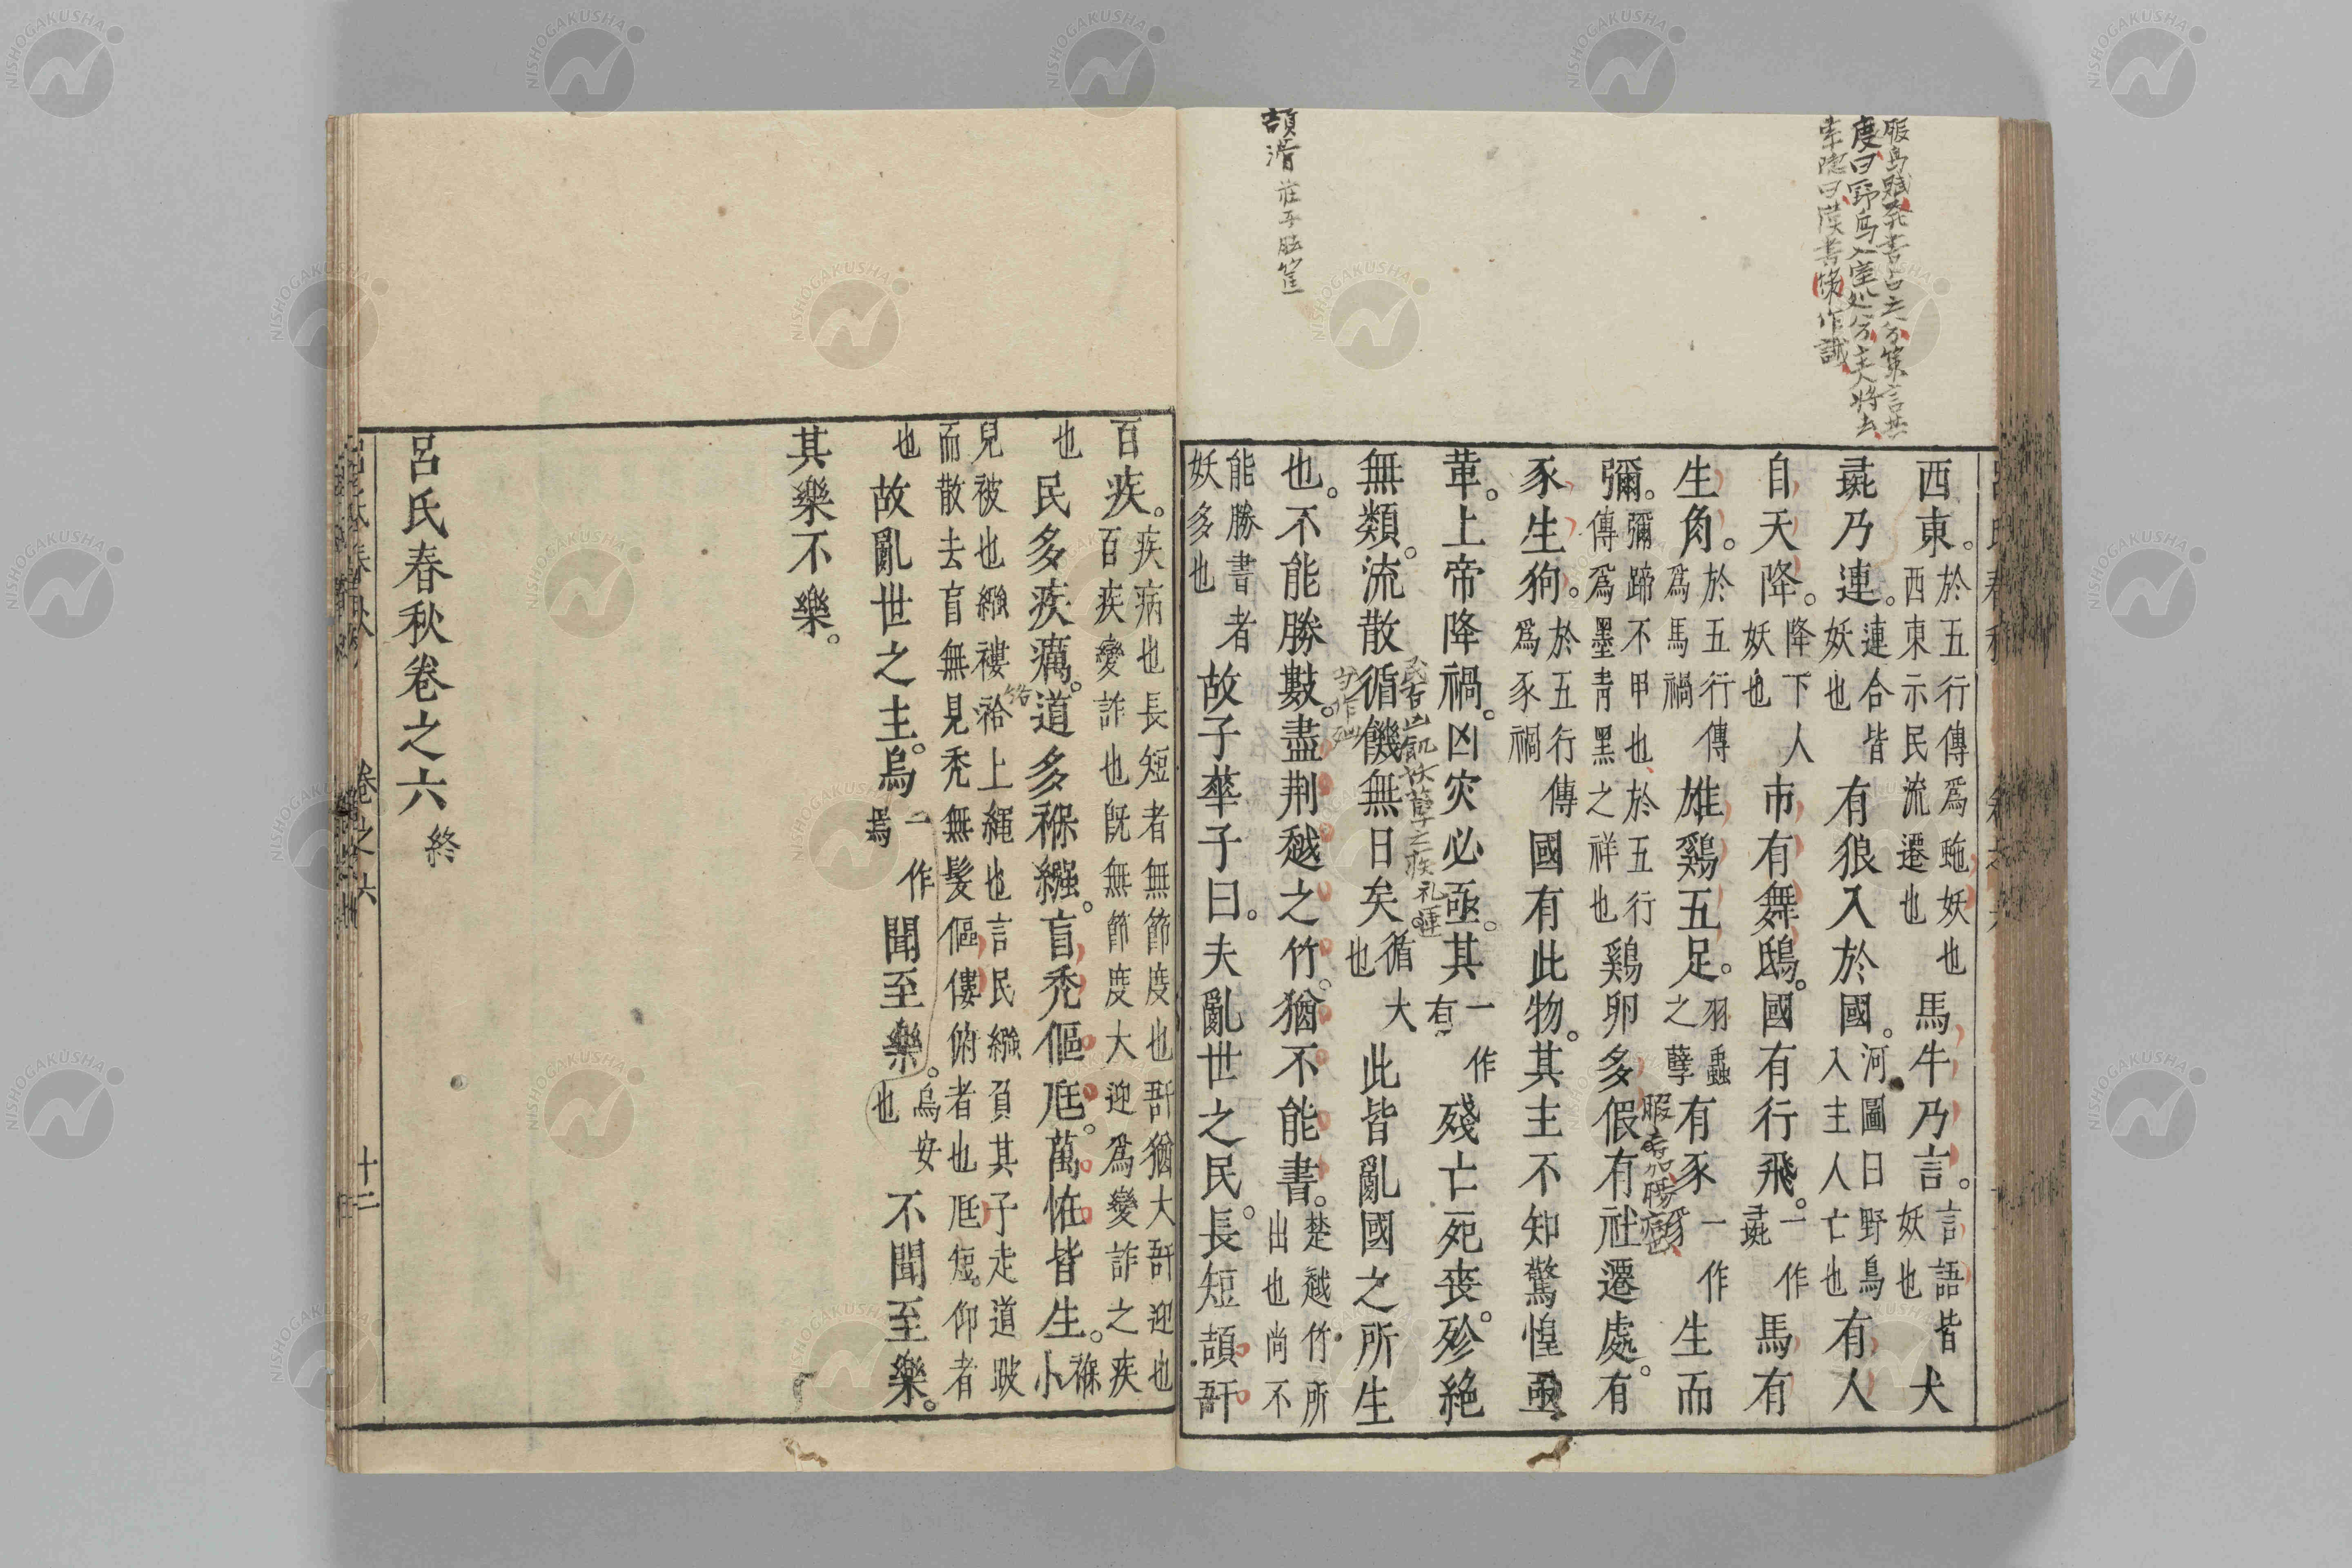 西東。於五行傳爲䖝妖也西東示民流遷也馬牛乃言。言語皆妖也犬
彘乃連。連合皆妖也有狼入於國。河圖曰野鳥入主人亡也有人
自天降。降下人妖也市有舞鴟。國有行飛。一作彘馬有
生角。於五行傳爲馬禍雄鷄五足。羽蟲之孽有豕一作豸生而
彌。彌蹄不甲也於五行傳爲墨青黑之祥也鷄卵多假有社遷處。有
豕生狗。於五行傳爲豕禍國有此物。其主不知驚惶亟
革。上帝降禍。凶灾必亟。其一作有殘亡死喪。殄絶
無類。流散循饑無日矣。循大也此皆亂國之所生
也。不能勝數。盡荆越之竹。猶不能書。楚越竹所出也尚不
能勝書者妖多也故子華子曰。夫亂世之民。長短頡䚽
百疾。疾病也長短者無節度也䚽猶大䚽迎也百疾變詐也旣無節度大迎爲變詐之疾
也民多疾癘。道多褓繈。盲禿傴尫。萬恠皆生。褓小
兒被也繦褸袷上繩也言民繦負其子走道跛而散去盲無見禿無髮傴僂俯者也尫短。仰者
也故亂世之主。烏一作焉聞至樂。烏安也不聞至樂。
其樂不樂。
呂氏春秋卷之六 終
呂氏春秋 卷之六 十二
頡滑 莊子胠篋
索隱曰漢書策作讖
度曰野鳥入室処兮主人將去